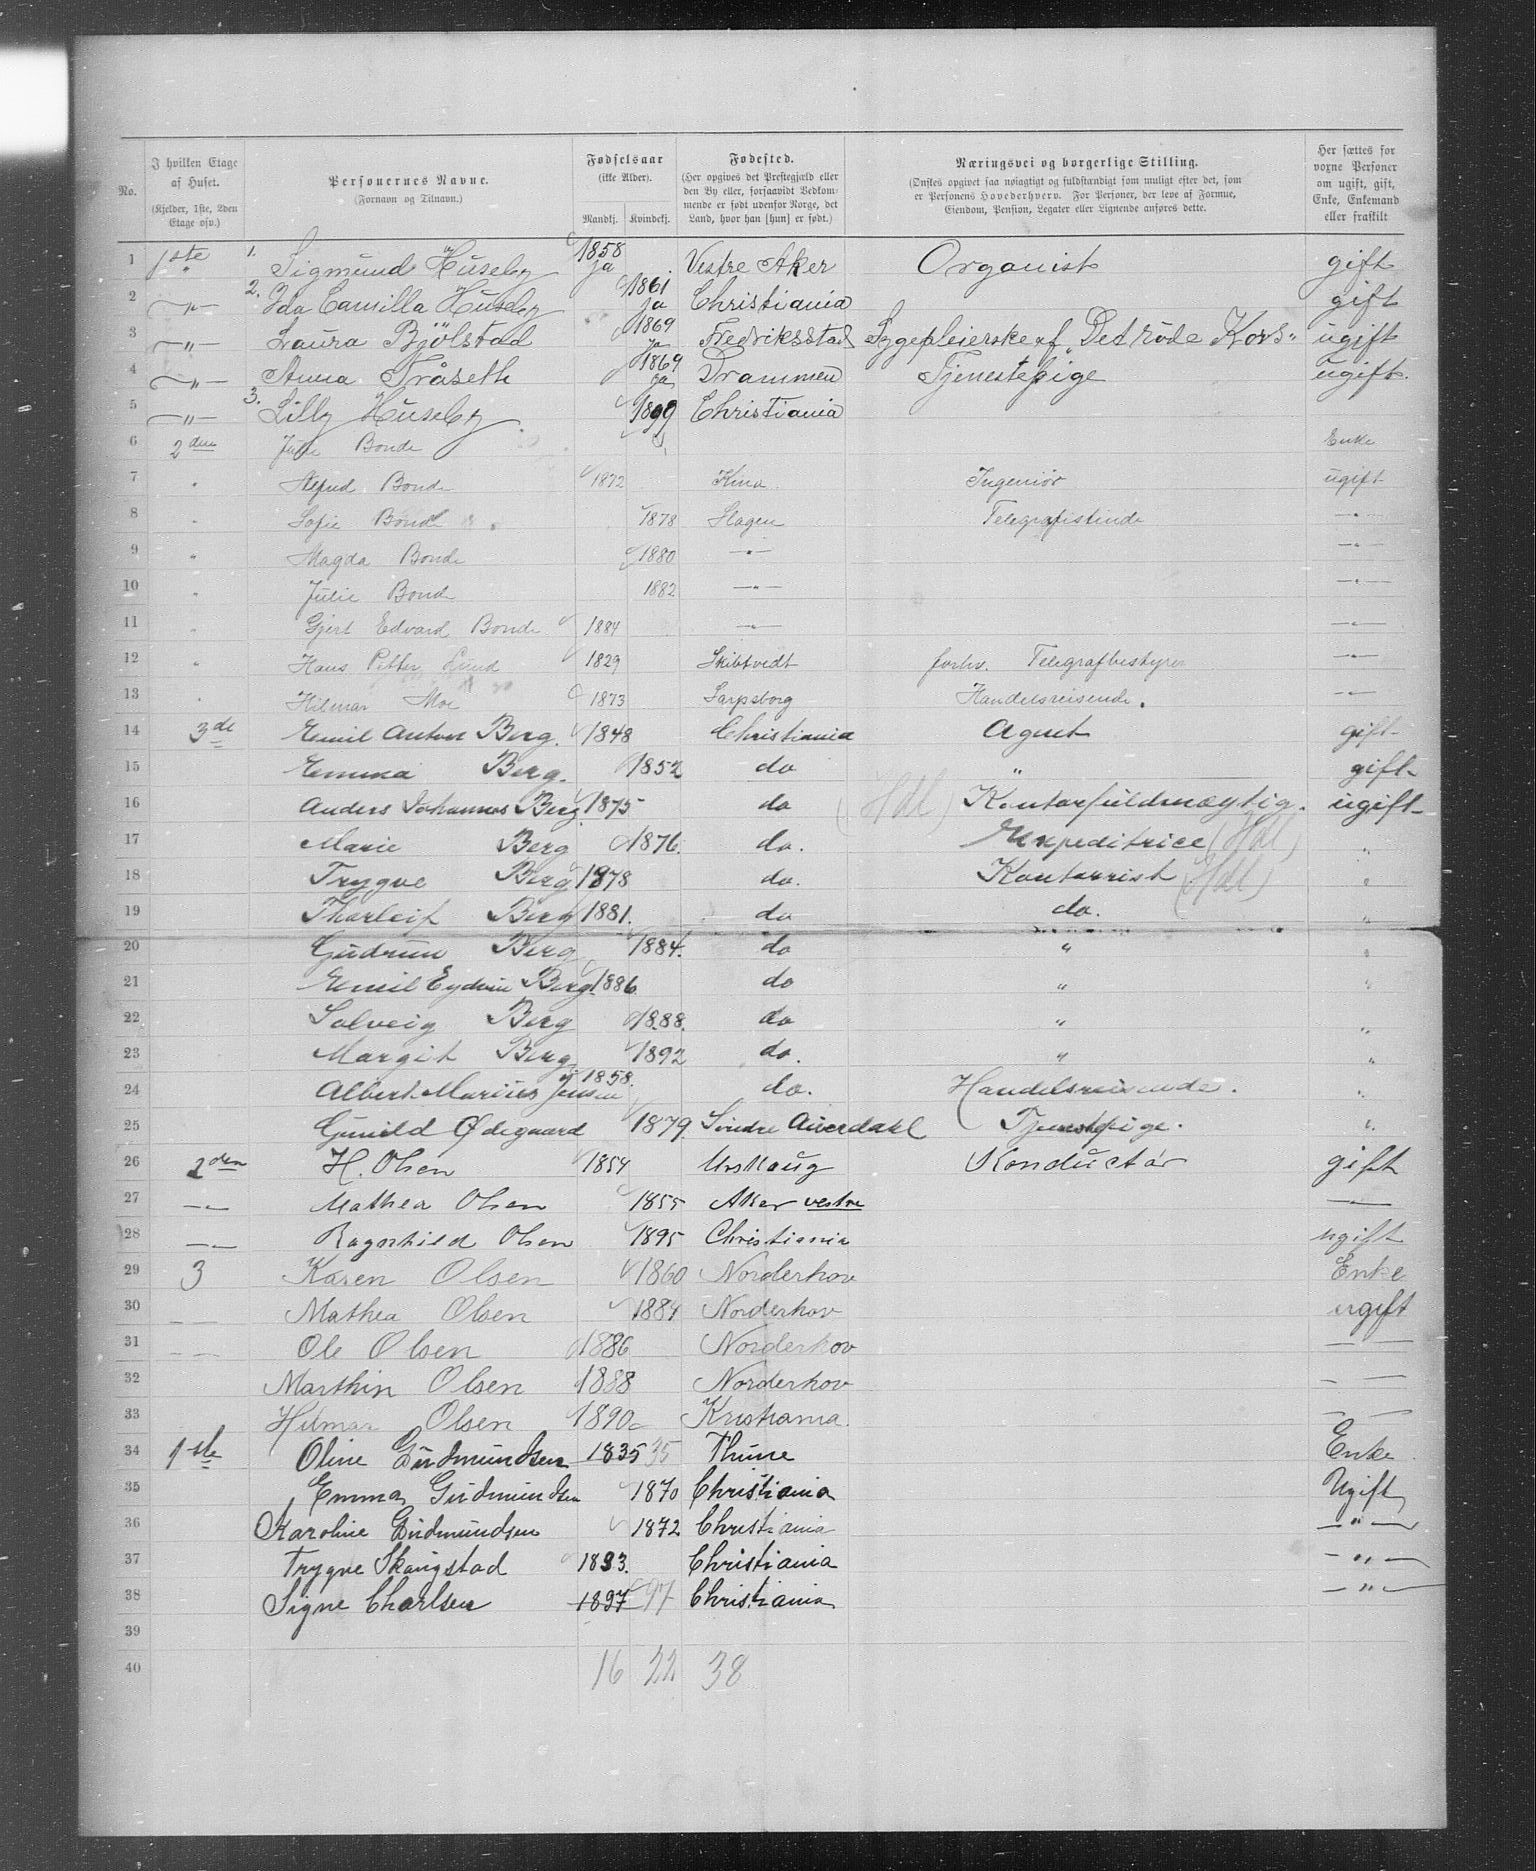 No. | I hvilken Etage af Huset. (Kjelder, 1ste, 2den Etage osv.) | Personernes Navne. (Fornavn og Tilnavn.) | Fødselsaar (ikke Alder). Mandkj. | Kvindekj. | Fødested. (Her opgives det Prestegjæld eller den By eller, forsaavidt Vedkommende er født udenfor Norge, det Land, hvor han [hun] er født.) | Næringsvei og borgerlige Stilling. (Ønskes opgivet saa nøiagtigt og fuldstændigt som muligt efter det, som er Personens Hovederhverv. For Personer, der leve af Formue, Eiendom, Pension, Legater eller Lignende anføres dette. | Her sættes for voxne Personer om ugift, gift, Enke, Enkemand eller fraskilt
1 1ste " 1. Sigmund Huseby 1858 ja Vestre Aker Organist gift
2 —"— 2. Ida Camilla Huseby 1861 ja Christiania gift
3 —"— Laura Bjölstad 1869 ja Fredriksstad Sygepleierske af "Det röde Kors" ugift
4 —"— Anna Tråseth 1869 ja Drammen Tjenestepige ugift.
5 —"— 3. Lilly Huseby 1899 Christiania
6 2den Julie Bonde Enke
7 " Alfred Bonde 1872 Kina Ingeniör ugift
8 " Sofie Bonde 1878 Slagen Telegrafistinde —"—
9 " Magda Bonde 1880 —"— —"—
10 " Julie Bonde 1882 —"— —"—
11 " Gjert Edvard Bonde 1884 —"— —"—
12 " Hans Petter Lund 1829 Skibtvedt forhv. Telegrafbestyrer —"—
13 " Hilmar Moe 1873 Sarpsborg Handelsreisende. —"—
14 3de Emil Anton Berg. 1848 Christiania Agent gift
15 Emma Berg. 1852 do " gift
16 Anders Johannes Berg 1875 do (Hdl) Kontorfuldmægtig. ugift
17 Marie Berg 1876. do. Expeditrice (Hdl) "
18 Trygve Berg 1878 do. Kontorrist (Hdl) "
19 Thorleif Berg 1881. do do. "
20 Gudrun Berg 1884. do " "
21 Emil Eydvin Berg 1886 do " "
22 Solveig Berg 1888. do " "
23 Margit Berg 1892 do. " "
24 Albert Marius Jensen 1858. do. Handelsreisende. "
25 Gunild Ødegaard 1879 Söndre Auerdahl Tjenestpige. "
26 2den H. Olsen 1854 Urskoug Konductör gift
27 —"— Mathea Olsen 1855 Aker vestre ——
28 —"— Ragnhild Olsen 1895 Christiania ugift
29 3 Karen Olsen 1860 Norderhov Enke
30 — — Mathea Olsen 1884 Norderhov ugift
31 — — Ole Olsen 1886 Norderhov — —
32 Marthin Olsen 1888 Norderhov — —
33 Hilmar Olsen 1890 Kristiania. — —
34 1ste Oline Gudmundsen 1835 35 Thune Enke
35 Emma Gudmundsen 1870 Christiania Ugift
36 Karoline Gudmundsen 1872 Christiania —"—
37 Trygve Skaugstad 1893. Christiania —"—
38 Signe Charlsen 1897 97 Christiania —"—
39
40 16 22 38